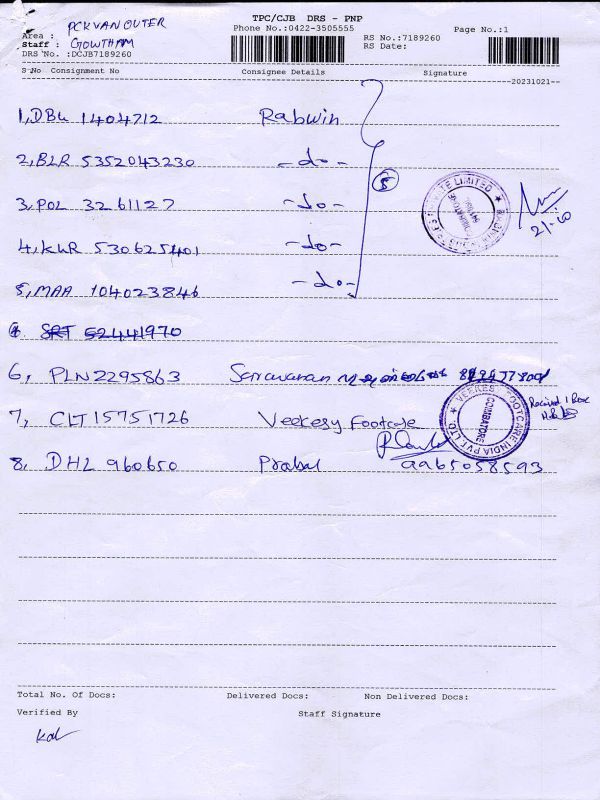 TPC/CJB DRS - PNP
PCKVAN OUTER
Phone No.:0422-3505555
Page No.:1
Area :
RS No.:7189260
Staff : GOWTHAM
RS Date:
DRS No. :DCJB7189260
S No Consignment No Consignee Details Signature
20231021
1, DBL 1404712 Rabwin
2, BLR 5352043230 -do-
3, POL 3261127 -do-
4, KLR 530625401 -do-
5, MAA 104023846 -do-
5
LIMITED
21-10
SRT 52441970
6, PLN 2295863 Saravanan
7, CLT 15751726 Veekesy Footcare
VEEKES FOOTCARE INDIA PVT. LTD.
COIMBATORE
Received 1 Box
8, DHL 960650 Prabal 9965058593
Total No. Of Docs: Delivered Docs: Non Delivered Docs:
Verified By Staff Signature